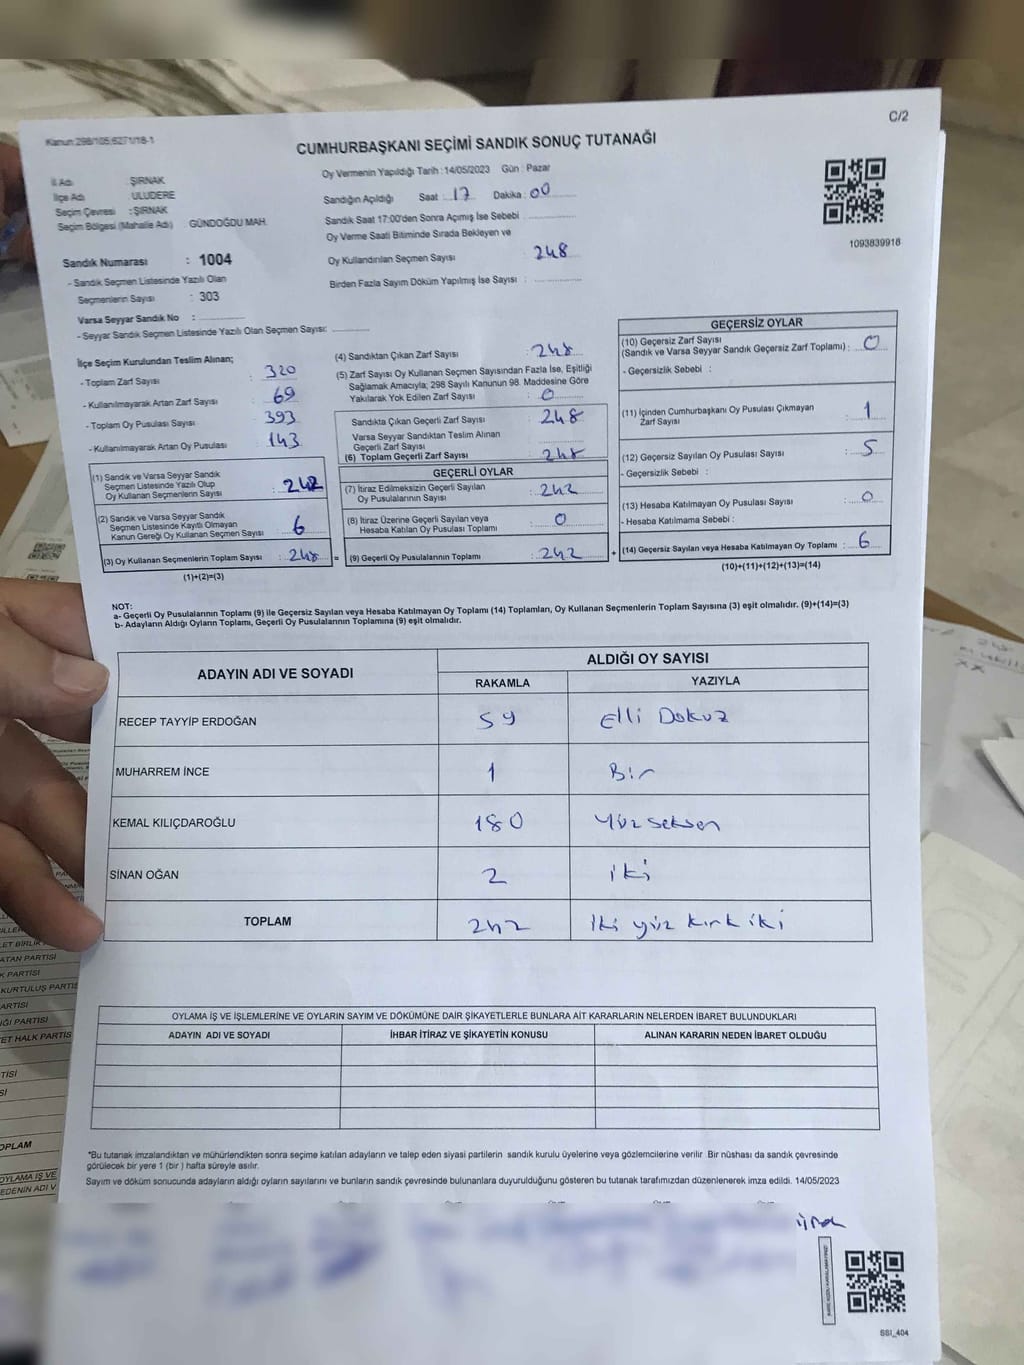 C/2
Kanun 298/105.6271/18-1
CUMHURBAŞKANI SEÇİMİ SANDIK SONUÇ TUTANAĞI
Oy Vermenin Yapıldığı Tarih : 14/05/2023 Gün : Pazar
İl Adı : ŞIRNAK
İlçe Adı : ULUDERE
Seçim Çevresi : ŞIRNAK
Seçim Bölgesi (Mahalle Adı) : GÜNDOĞDU MAH.
Sandık Numarası : 1004
- Sandık Seçmen Listesinde Yazılı Olan
Seçmenlerin Sayısı : 303
Varsa Seyyar Sandık No :
- Seyyar Sandık Seçmen Listesinde Yazılı Olan Seçmen Sayısı:
Sandığın Açıldığı Saat : 17 Dakika : 00
Sandık Saat 17:00'den Sonra Açımış İse Sebebi
Oy Verme Saati Bitiminde Sırada Bekleyen ve
Oy Kullandırılan Seçmen Sayısı : 248
Birden Fazla Sayım Döküm Yapılmış İse Sayısı :
1093839918
İlçe Seçim Kurulundan Teslim Alınan;
- Toplam Zarf Sayısı : 320
- Kullanılmayarak Artan Zarf Sayısı : 69
- Toplam Oy Pusulası Sayısı : 393
- Kullanılmayarak Artan Oy Pusulası : 143
(1) Sandık ve Varsa Seyyar Sandık
Seçmen Listesinde Yazılı Olup
Oy Kullanan Seçmenlerin Sayısı : 242
(2) Sandık ve Varsa Seyyar Sandık
Seçmen Listesinde Kayıtlı Olmayan
Kanun Gereği Oy Kullanan Seçmen Sayısı : 6
(3) Oy Kullanan Seçmenlerin Toplam Sayısı : 248 =
(1)+(2)=(3)
(4) Sandıktan Çıkan Zarf Sayısı : 248
(5) Zarf Sayısı Oy Kullanan Seçmen Sayısından Fazla İse, Eşitliği
Sağlamak Amacıyla; 298 Sayılı Kanunun 98. Maddesine Göre
Yakılarak Yok Edilen Zarf Sayısı : 0
Sandıkta Çıkan Geçerli Zarf Sayısı : 248
Varsa Seyyar Sandıktan Teslim Alınan
Geçerli Zarf Sayısı
(6) Toplam Geçerli Zarf Sayısı : 248
GEÇERLİ OYLAR
(7) İtiraz Edilmeksizin Geçerli Sayılan
Oy Pusulalarının Sayısı : 242
(8) İtiraz Üzerine Geçerli Sayılan veya
Hesaba Katılan Oy Pusulası Toplamı : 0
(9) Geçerli Oy Pusulalarının Toplamı : 242 +
GEÇERSİZ OYLAR
(10) Geçersiz Zarf Sayısı
(Sandık ve Varsa Seyyar Sandık Geçersiz Zarf Toplamı) : 0
- Geçersizlik Sebebi :
(11) İçinden Cumhurbaşkanı Oy Pusulası Çıkmayan
Zarf Sayısı : 1
(12) Geçersiz Sayılan Oy Pusulası Sayısı : 5
- Geçersizlik Sebebi :
(13) Hesaba Katılmayan Oy Pusulası Sayısı : 0
- Hesaba Katılmama Sebebi :
(14) Geçersiz Sayılan veya Hesaba Katılmayan Oy Toplamı : 6
(10)+(11)+(12)+(13)=(14)
NOT:
a- Geçerli Oy Pusulalarının Toplamı (9) ile Geçersiz Sayılan veya Hesaba Katılmayan Oy Toplamı (14) Toplamları, Oy Kullanan Seçmenlerin Toplam Sayısına (3) eşit olmalıdır. (9)+(14)=(3)
b- Adayların Aldığı Oyların Toplamı, Geçerli Oy Pusulalarının Toplamına (9) eşit olmalıdır.
ADAYIN ADI VE SOYADI ALDIĞI OY SAYISI
RAKAMLA YAZIYLA
RECEP TAYYİP ERDOĞAN 59 Elli Dokuz
MUHARREM İNCE 1 Bir
KEMAL KILIÇDAROĞLU 180 Yüz seksen
SİNAN OĞAN 2 iki
TOPLAM 242 İki yüz kırk iki
OYLAMA İŞ VE İŞLEMLERİNE VE OYLARIN SAYIM VE DÖKÜMÜNE DAİR ŞİKAYETLERLE BUNLARA AİT KARARLARIN NELERDEN İBARET BULUNDUKLARI
ADAYIN ADI VE SOYADI İHBAR İTİRAZ VE ŞİKAYETİN KONUSU ALINAN KARARIN NEDEN İBARET OLDUĞU
*Bu tutanak imzalandıktan ve mühürlendikten sonra seçime katılan adayların ve talep eden siyasi partilerin sandık kurulu üyelerine veya gözlemcilerine verilir. Bir nüshası da sandık çevresinde
görülecek bir yere 1 (bir) hafta süreyle asılır.
Sayım ve döküm sonucunda adayların aldığı oyların sayılarını ve bunların sandık çevresinde bulunanlara duyurulduğunu gösteren bu tutanak tarafımızdan düzenlenerek imza edildi. 14/05/2023
SSI_404
ATAN PARTİSİ
K PARTİSİ
KURTULUŞ PARTİS
ARTİSİ
ĞI PARTİSİ
ET HALK PARTİS
TİSİ
OPLAM
OYLAMA İŞ VE
EDENİN ADI V